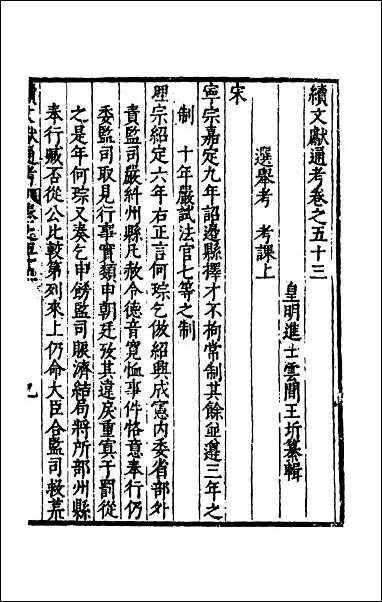 續文獻通考卷之五十三
皇明進士雲間王圻纂輯
選舉考　考課上
宋
寧宗嘉定九年詔邊縣擇才不拘常制其餘並遵三年之
制　十年嚴試法官七等之制
理宗紹定六年右正言何琮乞倣紹興成憲內委省部外
責監司嚴糾州縣凡赦令德音寬恤事件恪意奉行仍
委監司取見行事實類申朝廷攷其違戾重寘于罰從
之是年何琮又奏乞申飭監司賑濟結局將所部州縣
奉行臧否從公比較第列來上仍命大臣合監司較某
續文獻通考